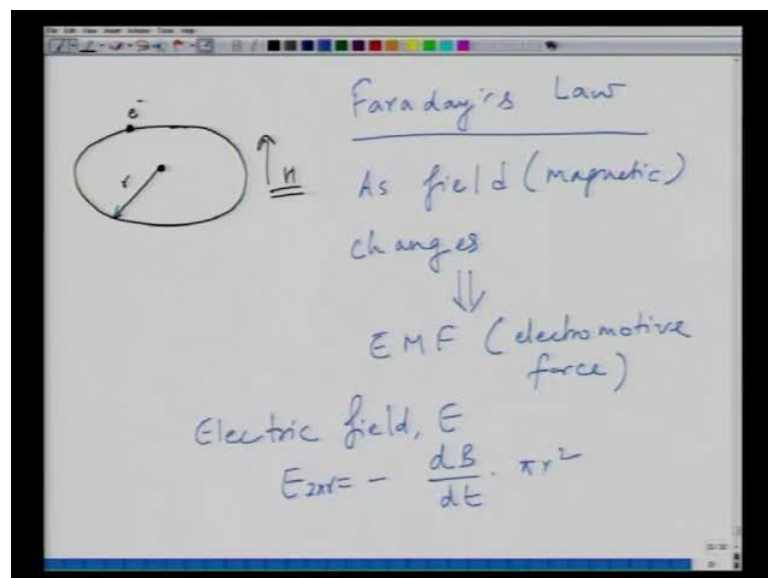 Faraday's Law
e⁻
r
H
As field (magnetic)
changes
⇓
EMF (electromotive
force)
Electric field, E
E2πr = - dB/dt · πr²